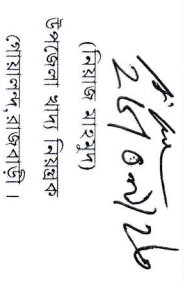 (নিয়াজ মাহমুদ)
উপজেলা খাদ্য নিয়ন্ত্রক
গোয়ালন্দ, রাজবাড়ী।